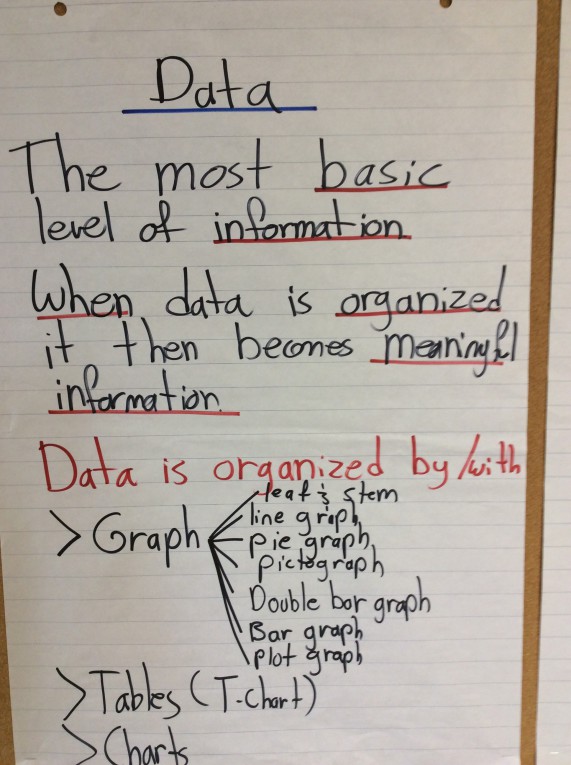 Data
The most basic
level of information
When data is organized
it then becomes meaningful
information.
Data is organized by/with
> Graph
leaf & stem
line graph
pie graph
pictograph
Double bar graph
Bar graph
plot graph
> Tables (T-Chart)
> Charts